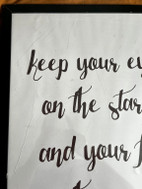 keep your ey
on the star
and your f